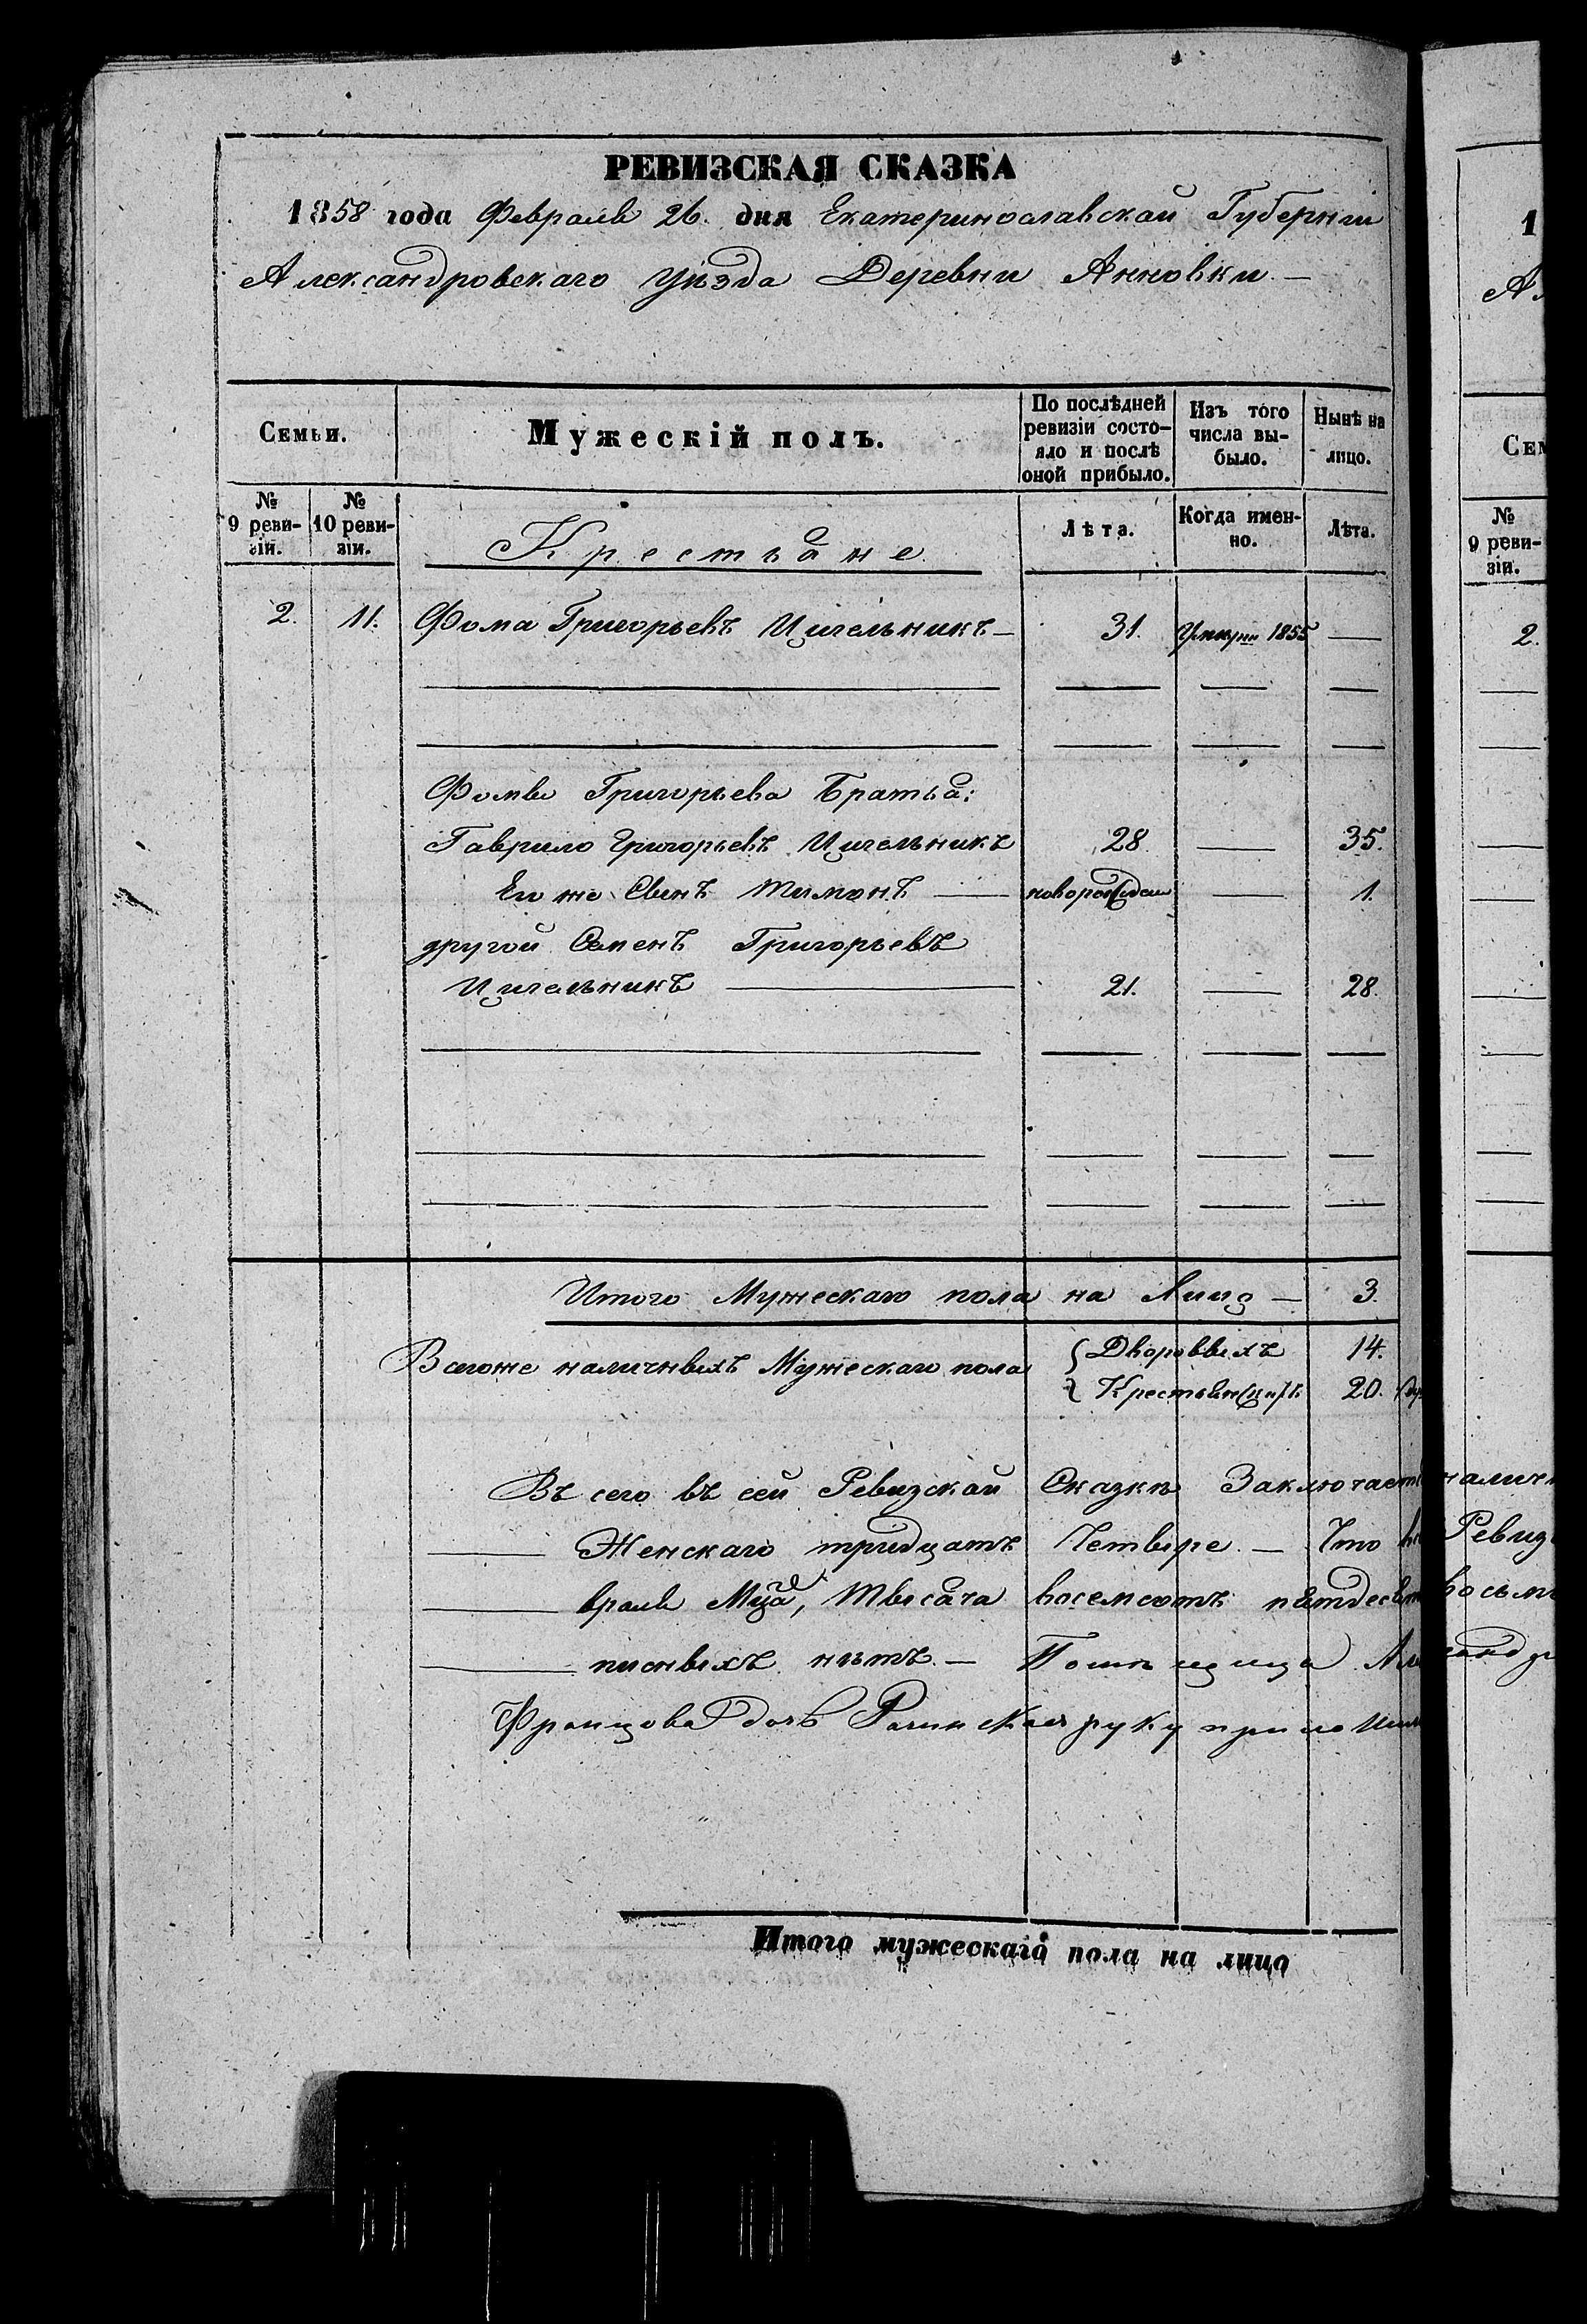 РЕВИЗСКАЯ СКАЗКА
1858 года Февраля 26. дня Екатеринославской Губерніи
Александровскаго Уѣзда Деревни Анновки. —
Семьи.
Мужескій полъ.
По послѣдней ревизіи состо-
яло и послѣ оной прибыло.
Изъ того числа вы-
было.
Нынѣ на лицо.
№ 9 реви-
зіи.
№ 10 реви-
зіи.
Крестьяне
Лѣта.
Когда имен-
но.
Лѣта.
2. 11. Фома Григорьевъ Цигельникъ — 31. 1855 —
Фомы Григорьева Братья:
Гаврило Григорьевъ Цигельникъ 28. — 35.
Его же Сынъ Тимонъ — новорожден — 1.
другой Семенъ Григорьевъ
Цигельникъ — 21. — 28.
Итого Мужескаго пола на Лицо — 3.
Всегоже наличныхъ Мужескаго пола { Дворовыхъ 14.
{ Крестьянскихъ 20.
Въ сего въ сей Ревизской Сказкѣ Заключает
— Женскаго тридцать Четыре. — Что
враля Мца, Тысяча восемсотъ пятдесят
— писныхъ нѣтъ. — Помѣщица
Францова дочь руку приложи
Итого мужескаго пола на лицо
1
Ал
Сем
№ 9 реви-
зіи.
2.
наличн
Ревиз
восьм